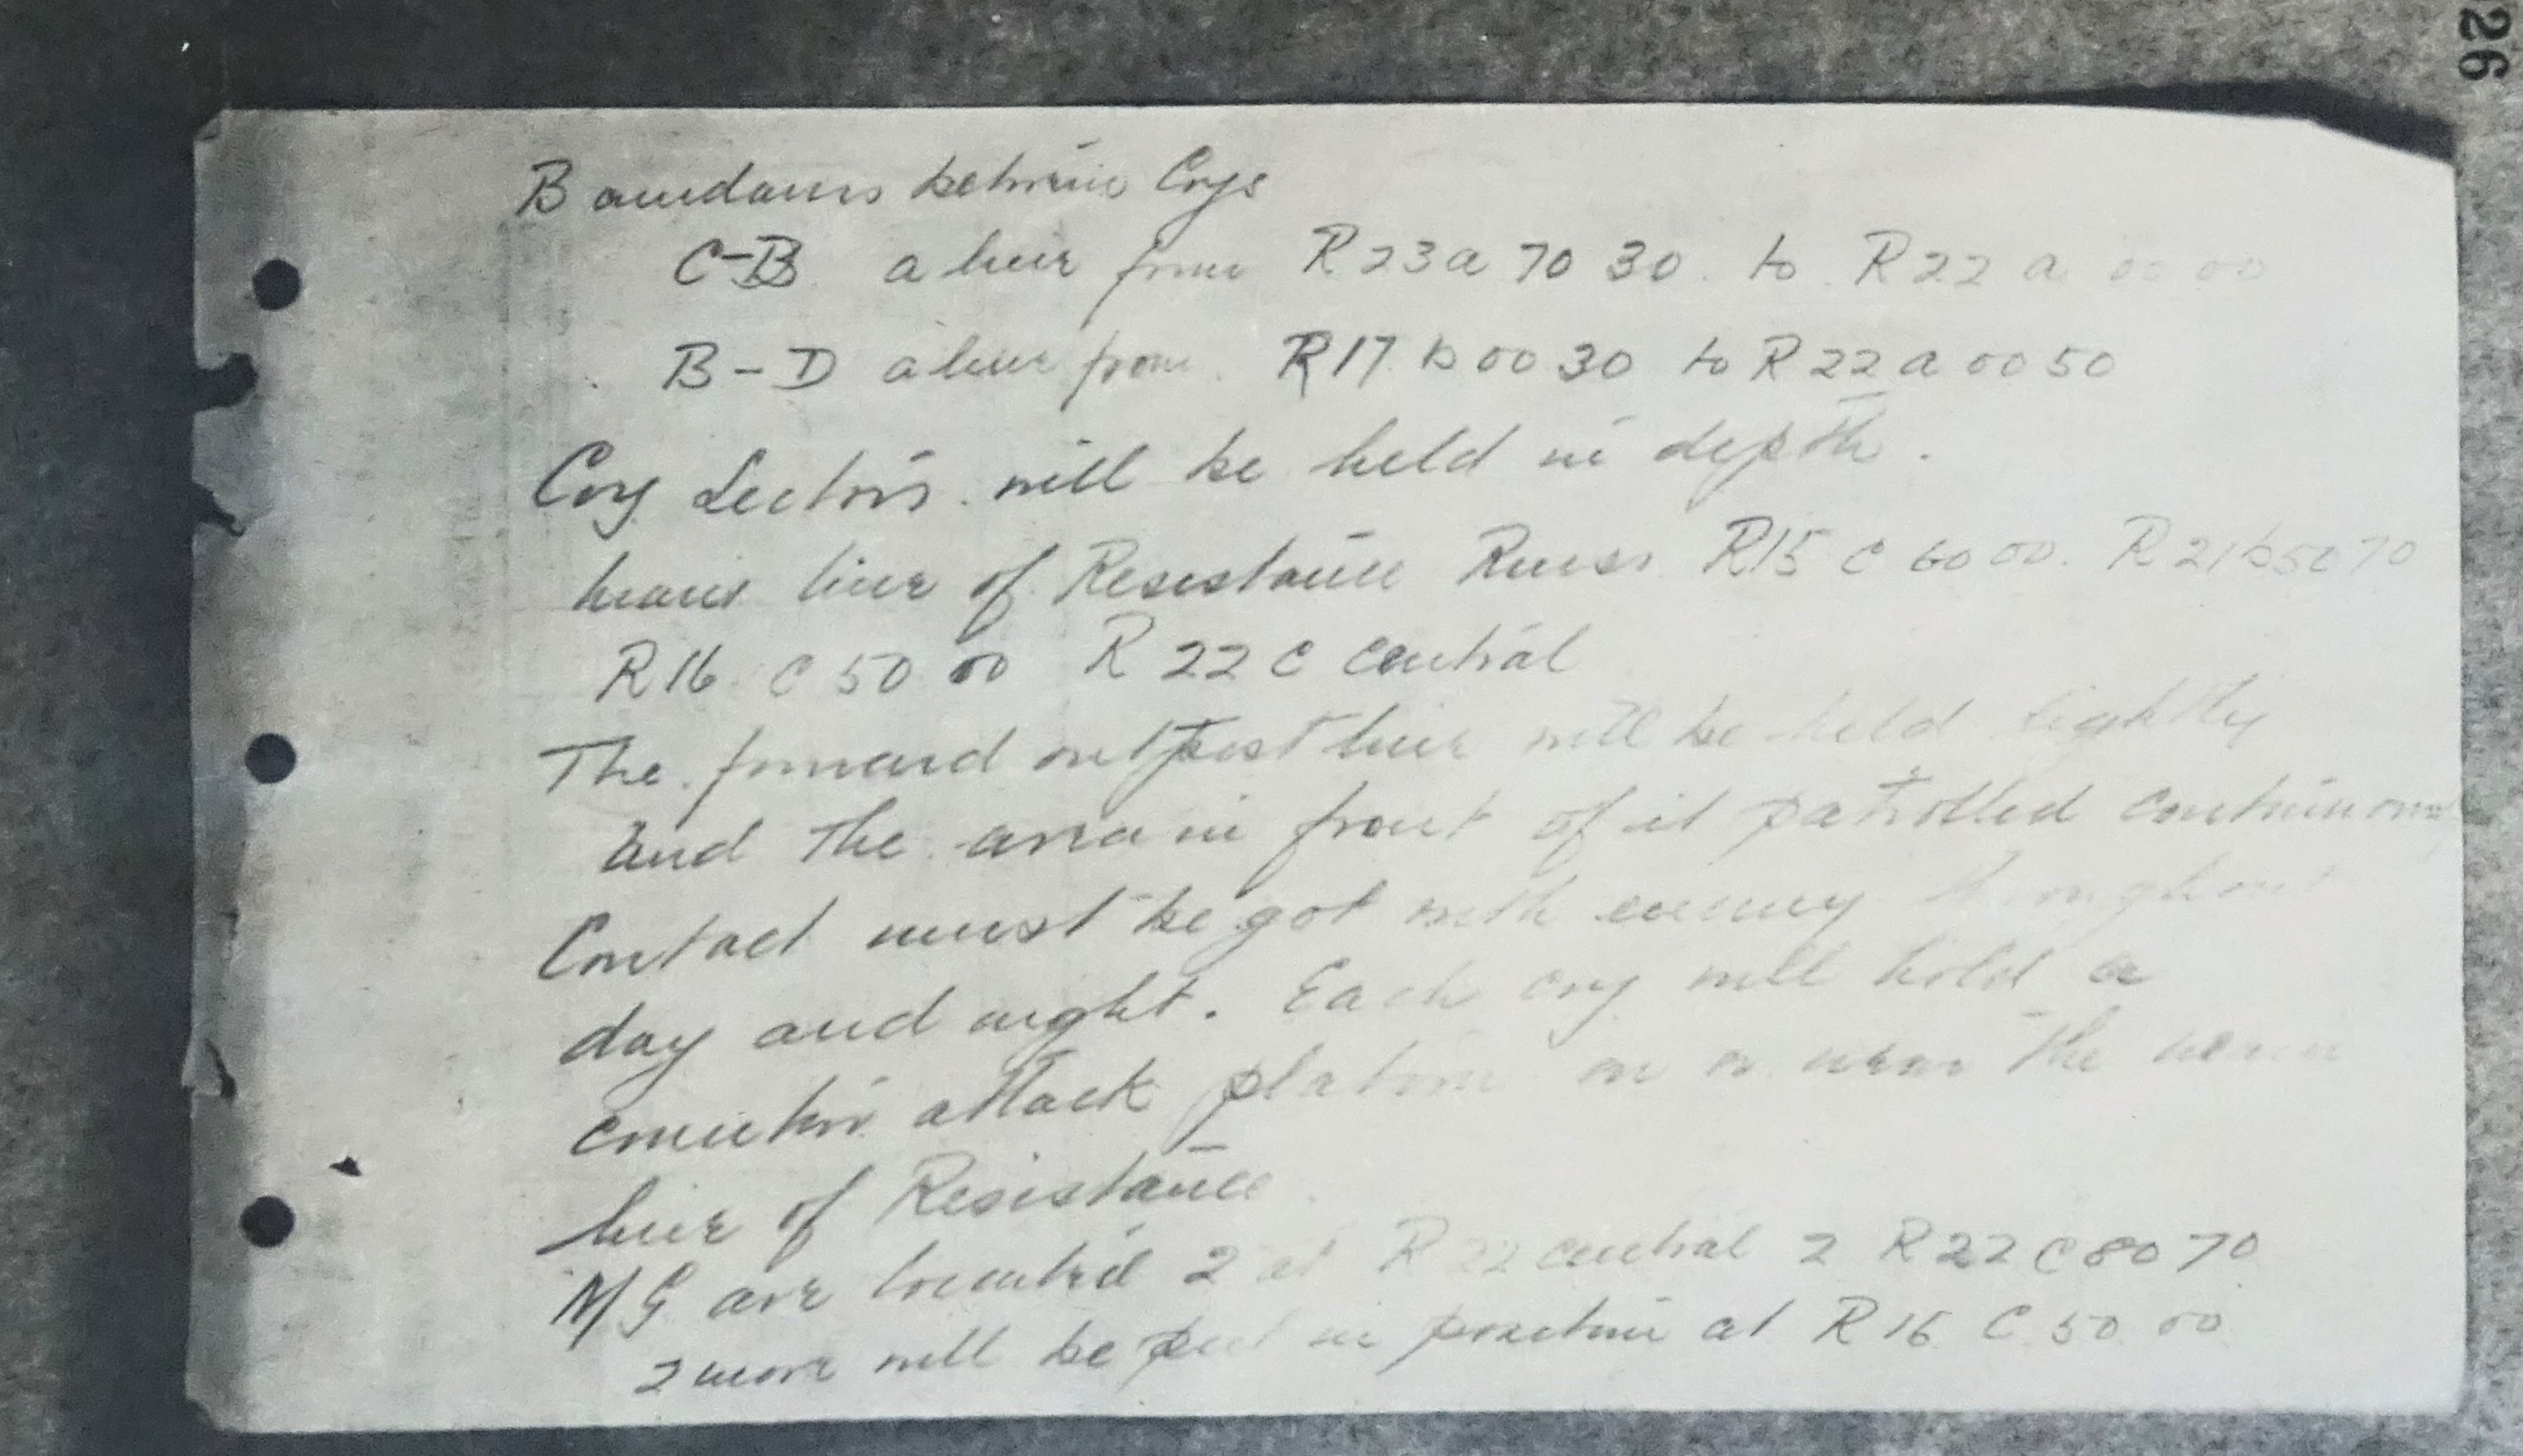 26
Boundaries between Coys
C-B a line from R23a 70 30. to R22 a 00 00
B-D a line from R17.b 00 30 to R22 a 00 50
Coy Sectors will be held in depth.
Main line of Resistance Runs R15 c 60 00. R21b50 70
R16 c 50 00 R22 c central
The forward outpost line will be held lightly
and the area in front of it patrolled
Contact must be got with enemy throughout
day and night. Each coy will hold a
counter attack platoon on or near the main
line of Resistance
M/G are located 2 at R 22 central 2 R22 c 80 70
2 more will be put in position at R16 C 50 00